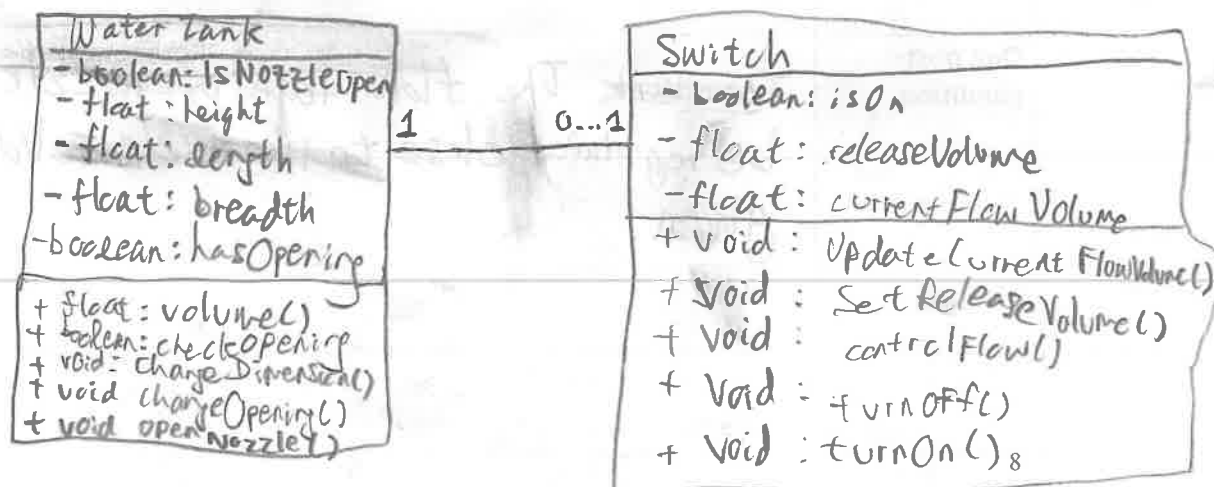 Water Tank
- boolean: IsNozzleOpen
- float: height
- float: length
- float: breadth
- boolean: hasOpening
+ float: volume()
+ boolean: checkOpening
+ void: changeDimension()
+ void changeOpening()
+ void openNozzle()
1
0...1
Switch
- boolean: isOn
- float: releaseVolume
- float: currentFlowVolume
+ void: UpdateCurrentFlowVolume()
+ void: SetReleaseVolume()
+ void: controlFlow()
+ Void: turnOff()
+ Void: turnOn()
8